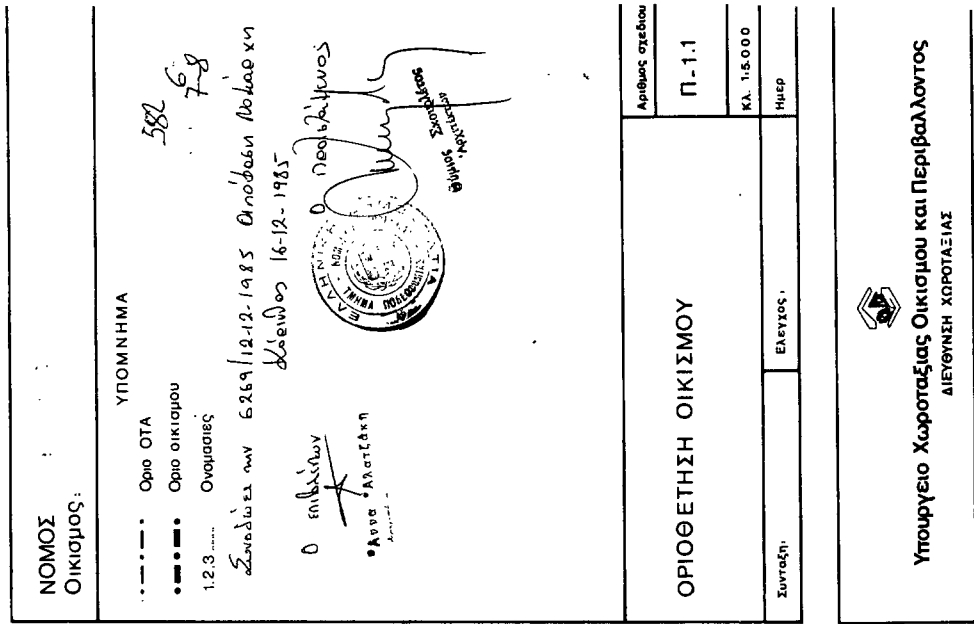 ΝΟΜΟΣ
Οικισμος:
ΥΠΟΜΝΗΜΑ
Οριο ΟΤΑ
Οριο οικισμου
1.2.3 ..... Ονομασιες
582
6
7-8
Συνοδεύει την 6269/12-12-1985 Απόφαση Νομάρχη
Κόρινθος 16-12-1985
Ο επιβλέπων
Ο Προϊστάμενος
Άννα Αλατζάκη
Θέμιος
Αρχιτέκτων
ΕΛΛΗΝΙΚΗ
ΤΜΗΜΑ
ΟΡΙΟΘΕΤΗΣΗ ΟΙΚΙΣΜΟΥ
Αριθμος σχεδιου
Π-1.1
ΚΛ. 1:5.000
Συνταξη:
Ελεγχος:
Ημερ
Υπουργειο Χωροταξιας Οικισμου και Περιβαλλοντος
ΔΙΕΥΘΥΝΣΗ ΧΩΡΟΤΑΞΙΑΣ